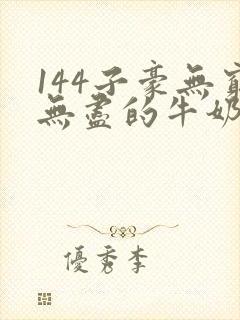 144子豪無窮
無盡的牛奶
優秀李